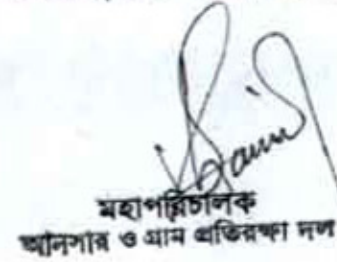 মহাপরিচালক
আনসার ও গ্রাম প্রতিরক্ষা দল